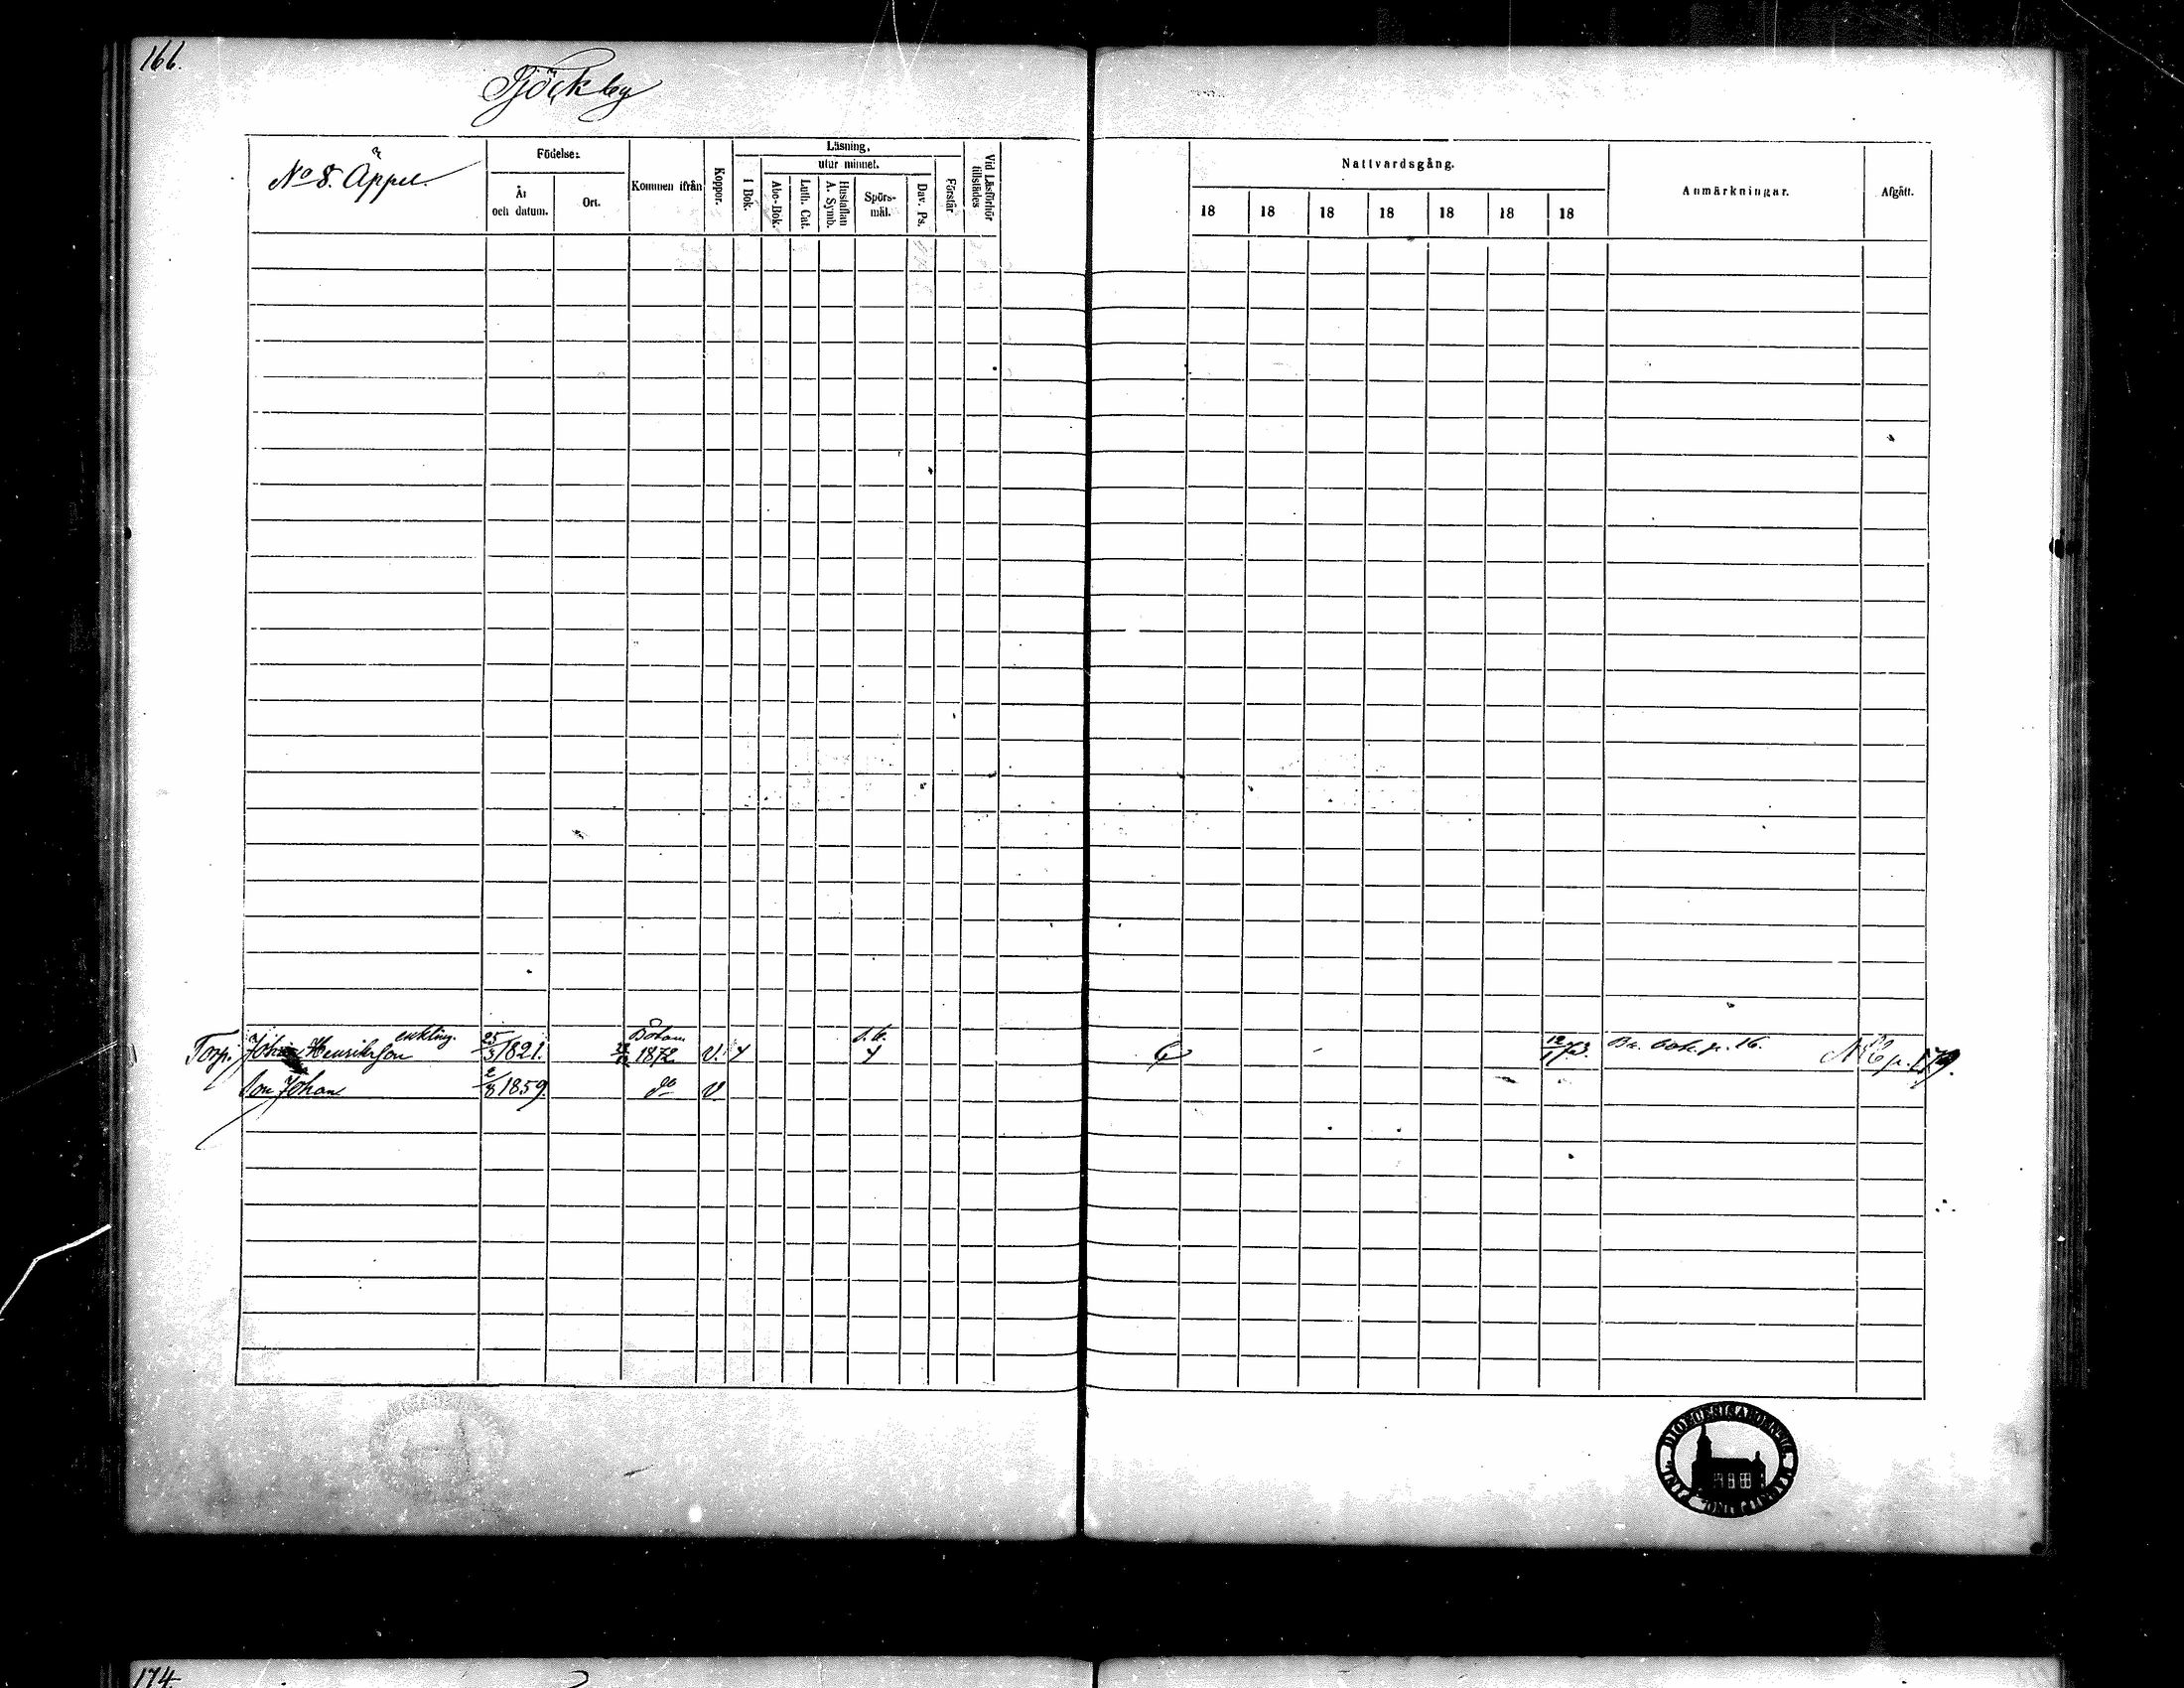 166.
Pjöckby
No 8. Äppel.
Födelse:
År och datum.
Ort.
Kommen ifrån
Koppor.
Läsning,
utur minnet.
I Bok.
Abc-Bok.
Luth. Cat.
Hustaflan A. Symb.
Spörs-mål.
Dav. Ps.
Förstår
Vid Läsförhör tillstädes
Nattvardsgång.
18 18 18 18 18 18 18
Anmärkningar.
Afgått.
enkling.
Torp. Johan Henriksson 25/3 1821. Bötom 1872 V. 12/1 73. Br. bok. p. 16.
Son Johan 2/8 1859. do V
174.